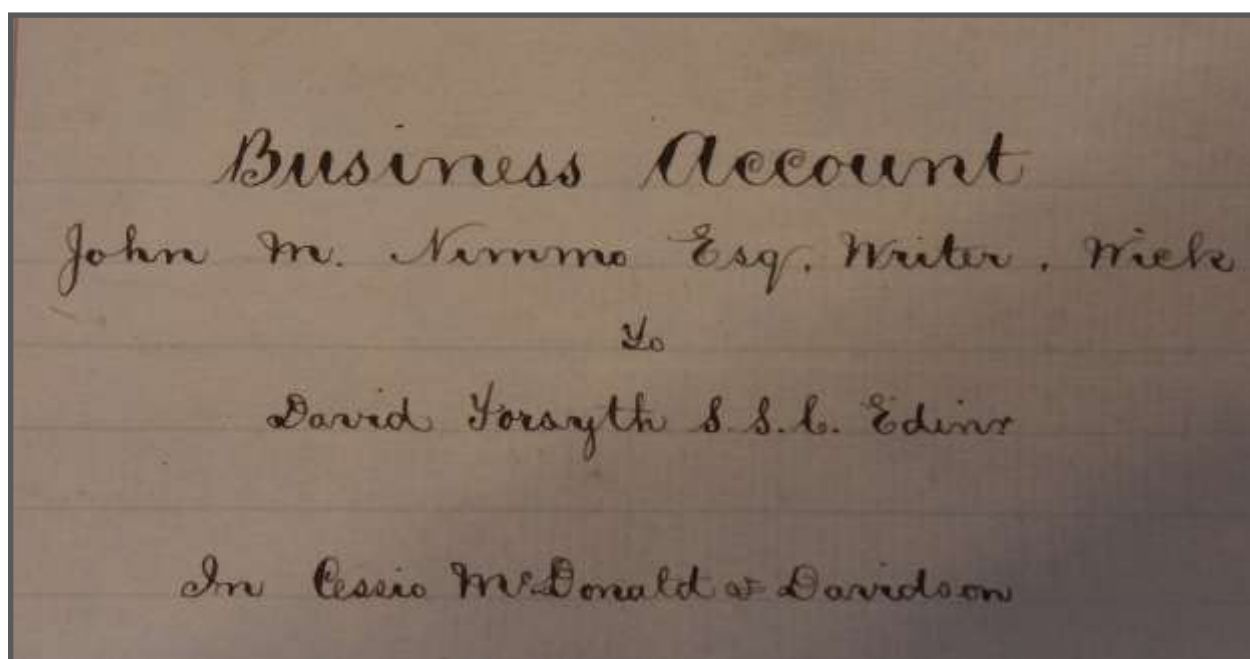 Business Account
John M. Nimmo Esq. Writer. Wick
To
David Forsyth S.S.C. Edinr
In Cessio McDonald v Davidson